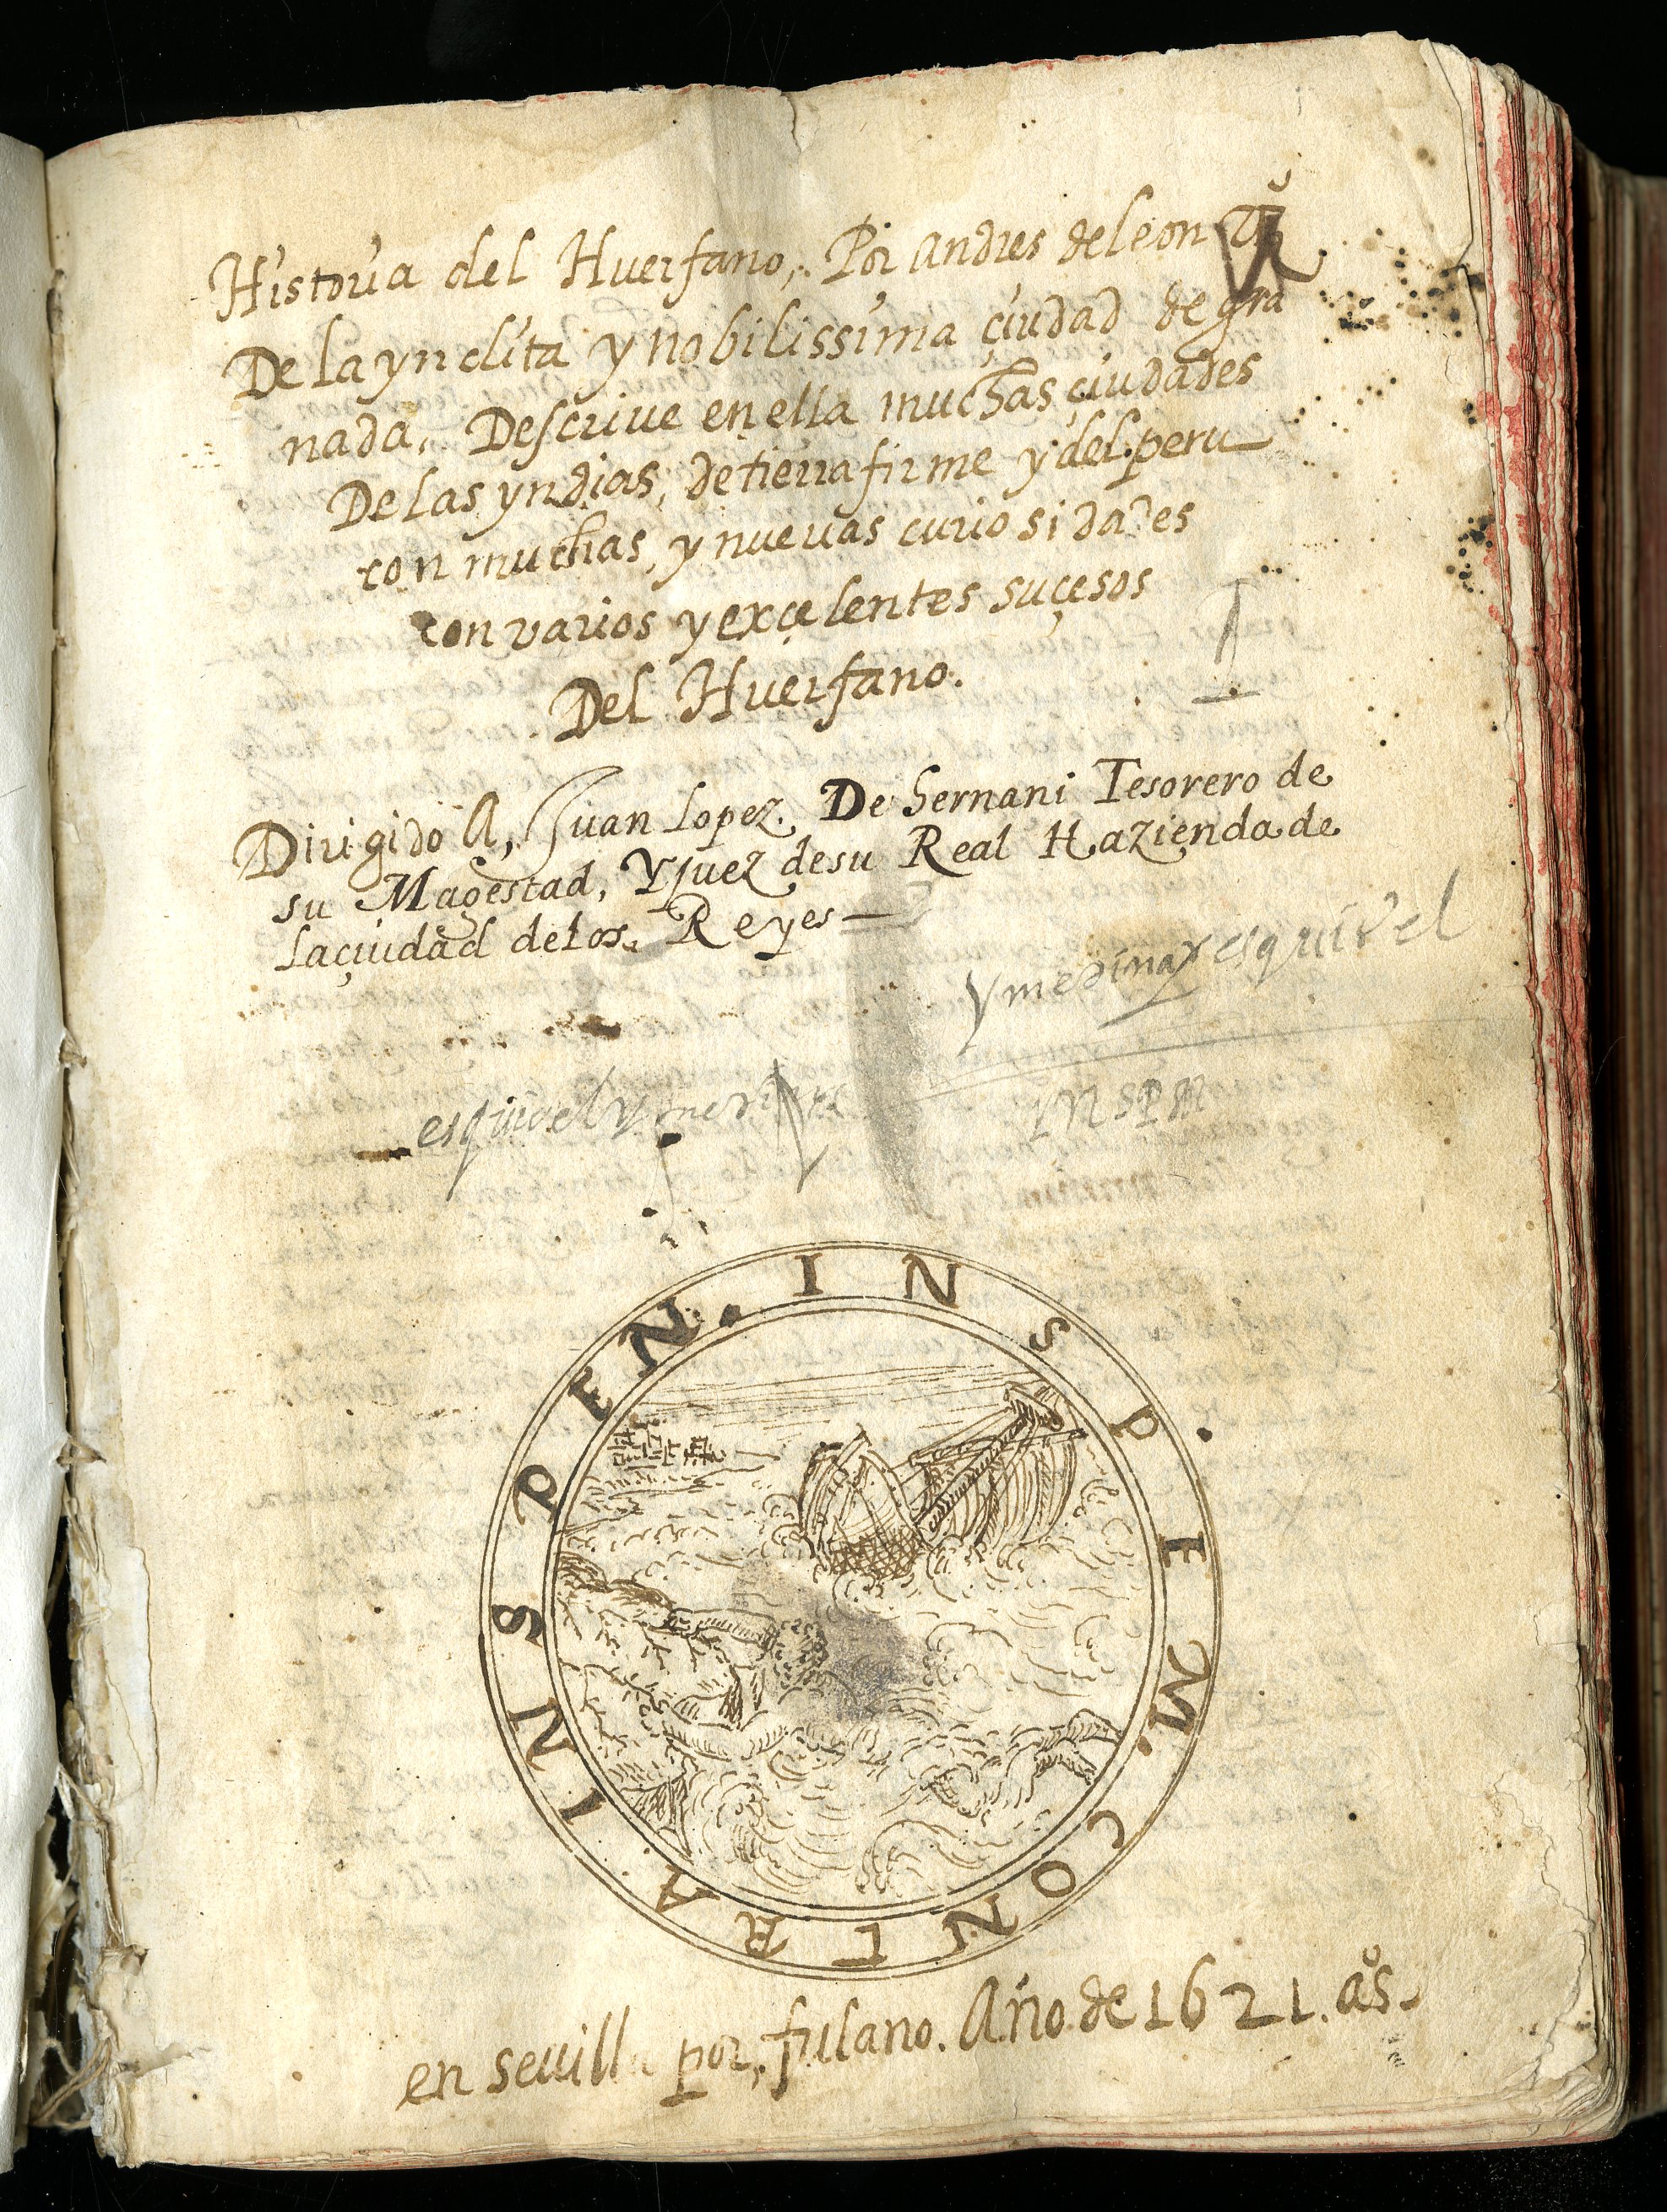 Historia del Huerfano, Por Andres de leon
De la ynclita y nobilissima çiudad de gra
nada. Descrive en ella muchas çiudades
De las yndias, de tierra firme y del peru
con muchas, y nuevas curiosidades
con varios y exçelentes suçesos
Del Huerfano.
Dirigido A, Juan Lopez. De hernani Tesorero de
su Magestad, Y Juez de su Real Hazienda de
la çiudad de los. Reyes
y medina y esquivel
esquivel y
INSPM
IN SPEM. CONTRA INSPEN.
en sevilla por, fulano. Año de 1621. as.